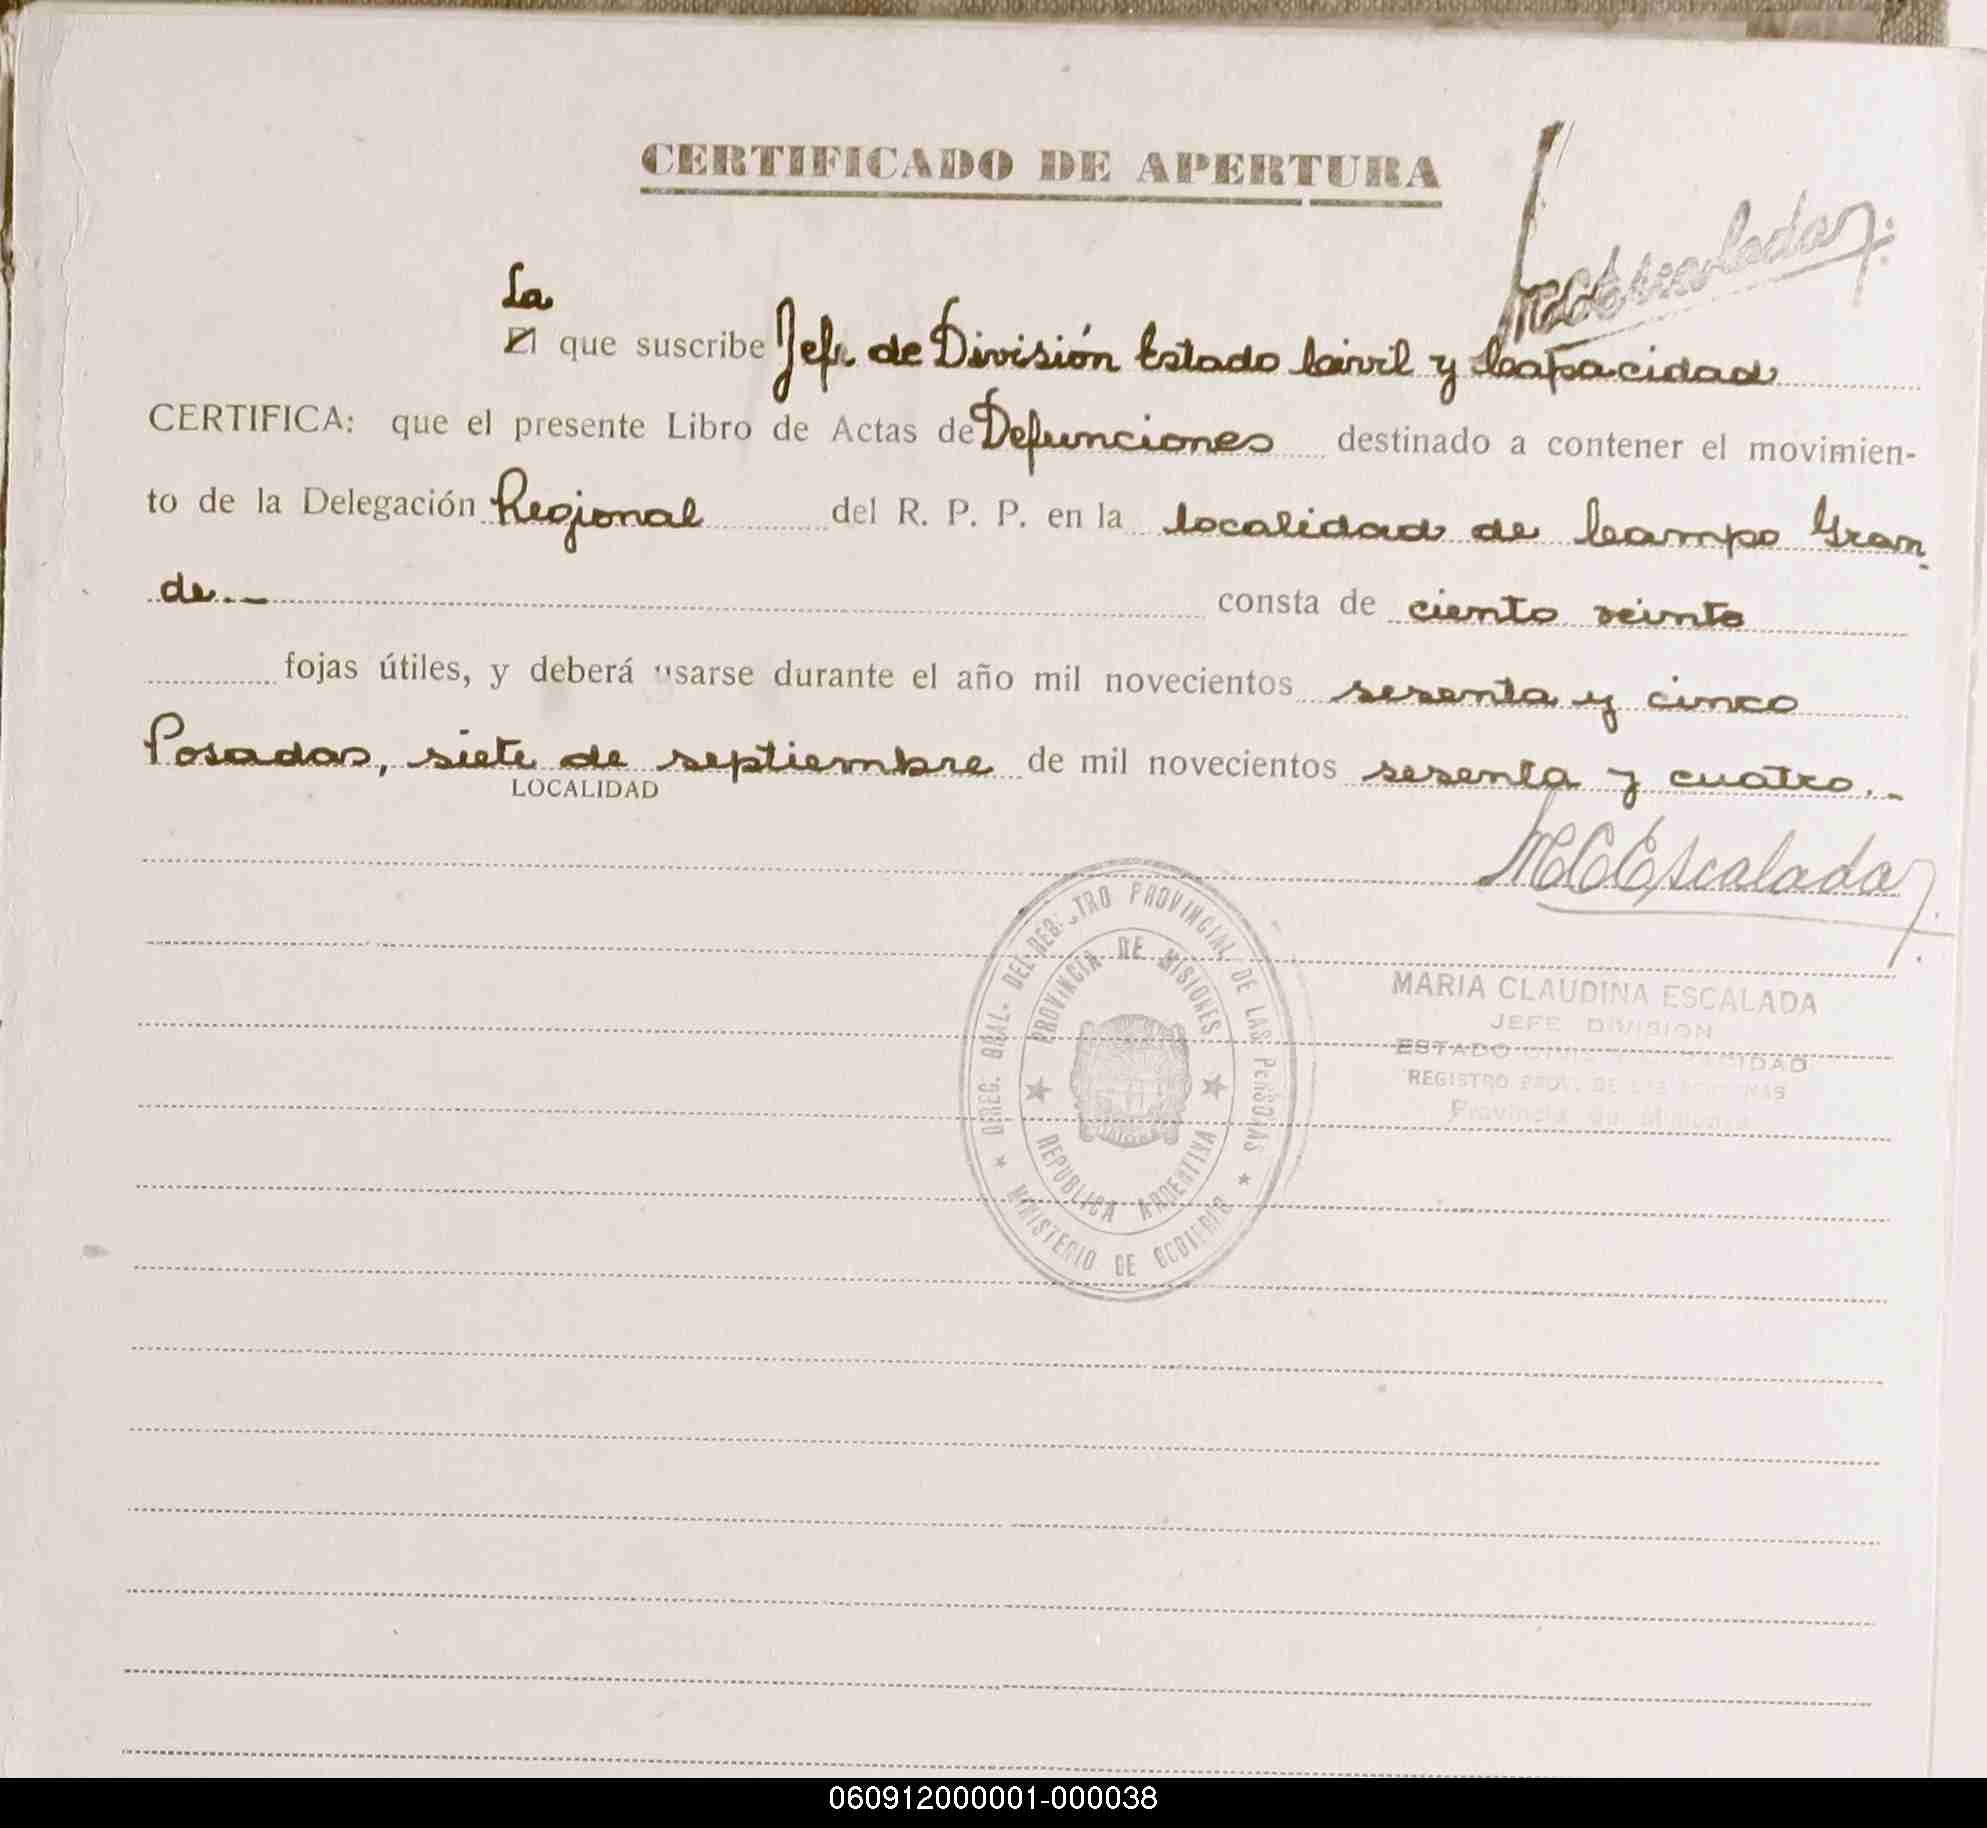 CERTIFICADO DE APERTURA
MCEscalada
La
El que suscribe Jefe de División Estado Civil y Capacidad
CERTIFICA: que el presente Libro de Actas de Defunciones destinado a contener el movimien-
to de la Delegación Regional del R. P. P. en la localidad de Campo Gran-
de.- consta de ciento veinte
fojas útiles, y deberá usarse durante el año mil novecientos sesenta y cinco
Posadas, siete de septiembre de mil novecientos sesenta y cuatro.-
LOCALIDAD
MCEscalada
DIREC. GRAL. DEL REGISTRO PROVINCIAL DE LAS PERSONAS
PROVINCIA DE MISIONES
REPUBLICA ARGENTINA
MINISTERIO DE GOBIERNO
MARIA CLAUDINA ESCALADA
JEFE DIVISION
ESTADO CIVIL Y CAPACIDAD
REGISTRO PROV. DE LAS PERSONAS
Provincia de Misiones
060912000001-000038